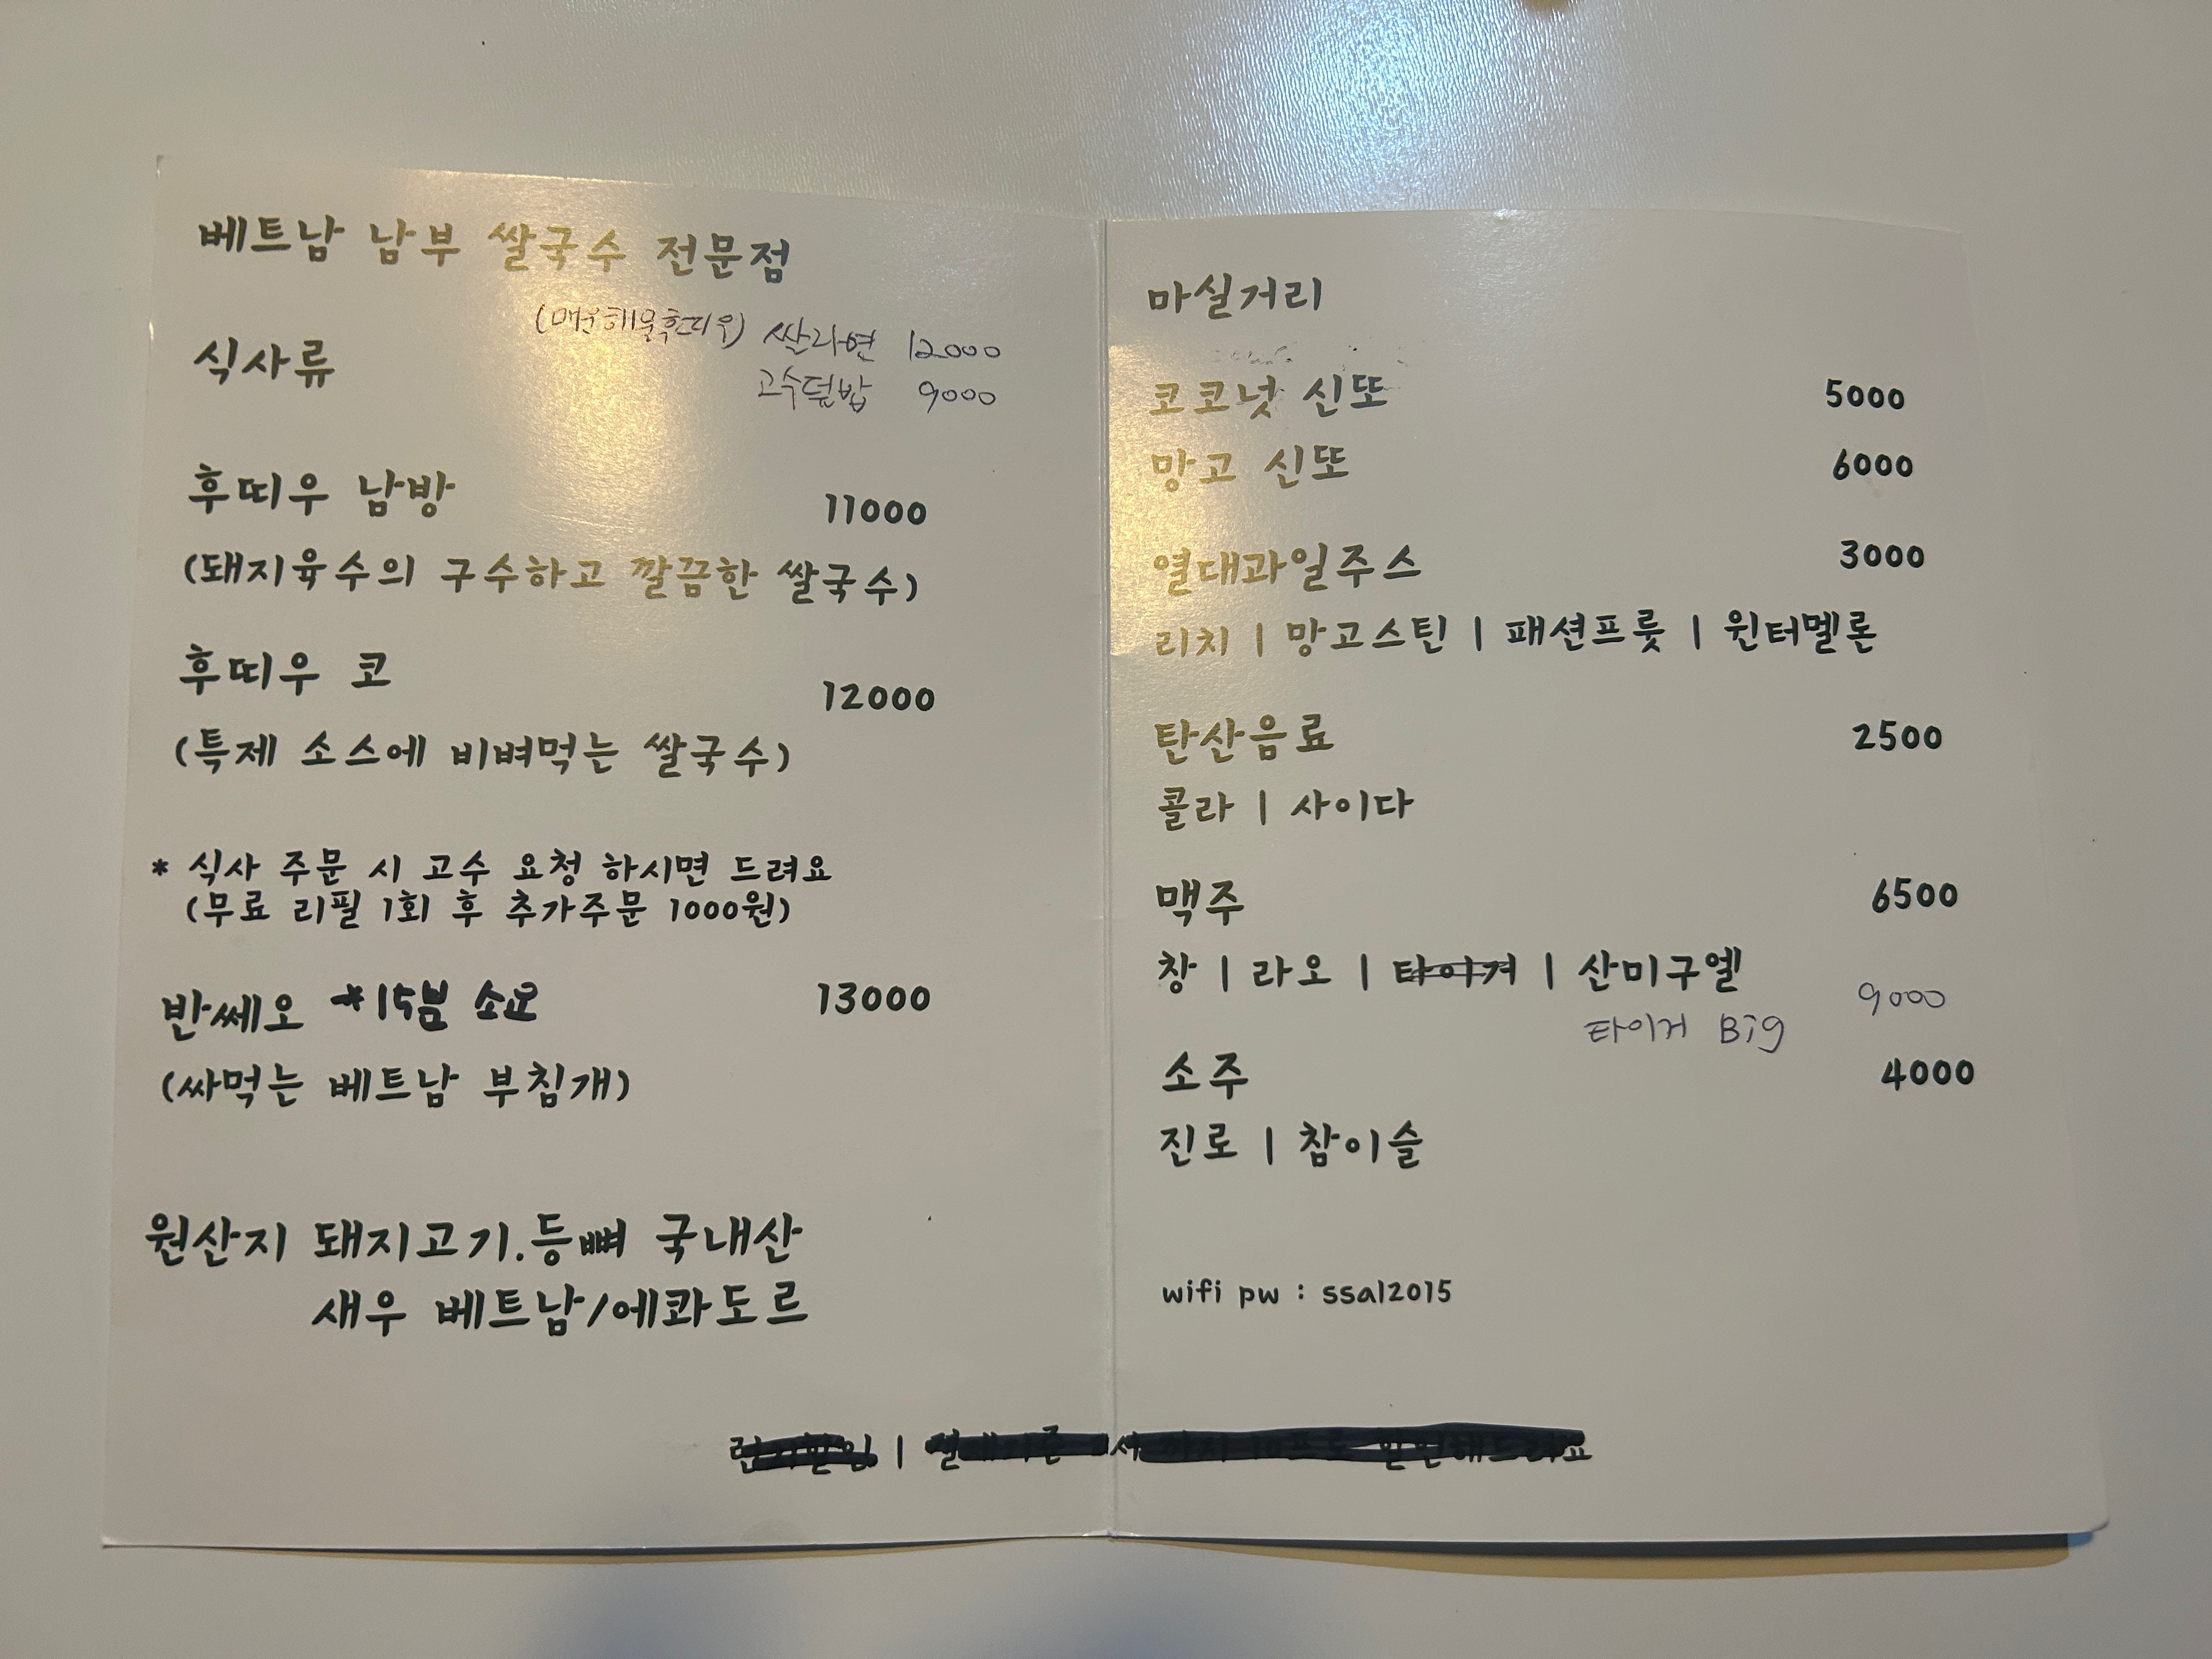 베트남 남부 쌀국수 전문점
식사류
(매운해물후띠우) 쌀라면 12000
고수덮밥 9000
후띠우 남방 11000
(돼지육수의 구수하고 깔끔한 쌀국수)
후띠우 코 12000
(특제 소스에 비벼먹는 쌀국수)
* 식사 주문 시 고수 요청 하시면 드려요
(무료 리필 1회 후 추가주문 1000원)
반쎄오 *15분 소요 13000
(싸먹는 베트남 부침개)
원산지 돼지고기.등뼈 국내산
새우 베트남/에콰도르
마실거리
코코넛 신또 5000
망고 신또 6000
열대과일주스 3000
리치 | 망고스틴 | 패션프룻 | 윈터멜론
탄산음료 2500
콜라 | 사이다
맥주 6500
창 | 라오 | 타이거 | 산미구엘
타이거 Big 9000
소주 4000
진로 | 참이슬
wifi pw : ssal2015